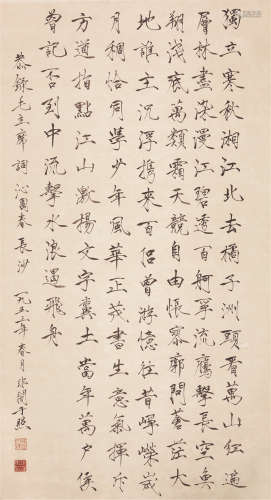 獨立寒秋湘江北去橘子洲頭看萬山紅遍
層林盡染漫江碧透百舸爭流鷹擊長空魚
翔淺底萬類霜天競自由悵寥廓問蒼茫大
地誰主沉浮攜來百侶曾游憶往昔崢嶸歲
月稠恰同學少年風華正茂書生意氣揮斥
方遒指點江山激揚文字糞土當年萬戶侯
曾記否到中流擊水浪遏飛舟
恭錄毛主席詞沁園春長沙 一九五年春月非闇于照